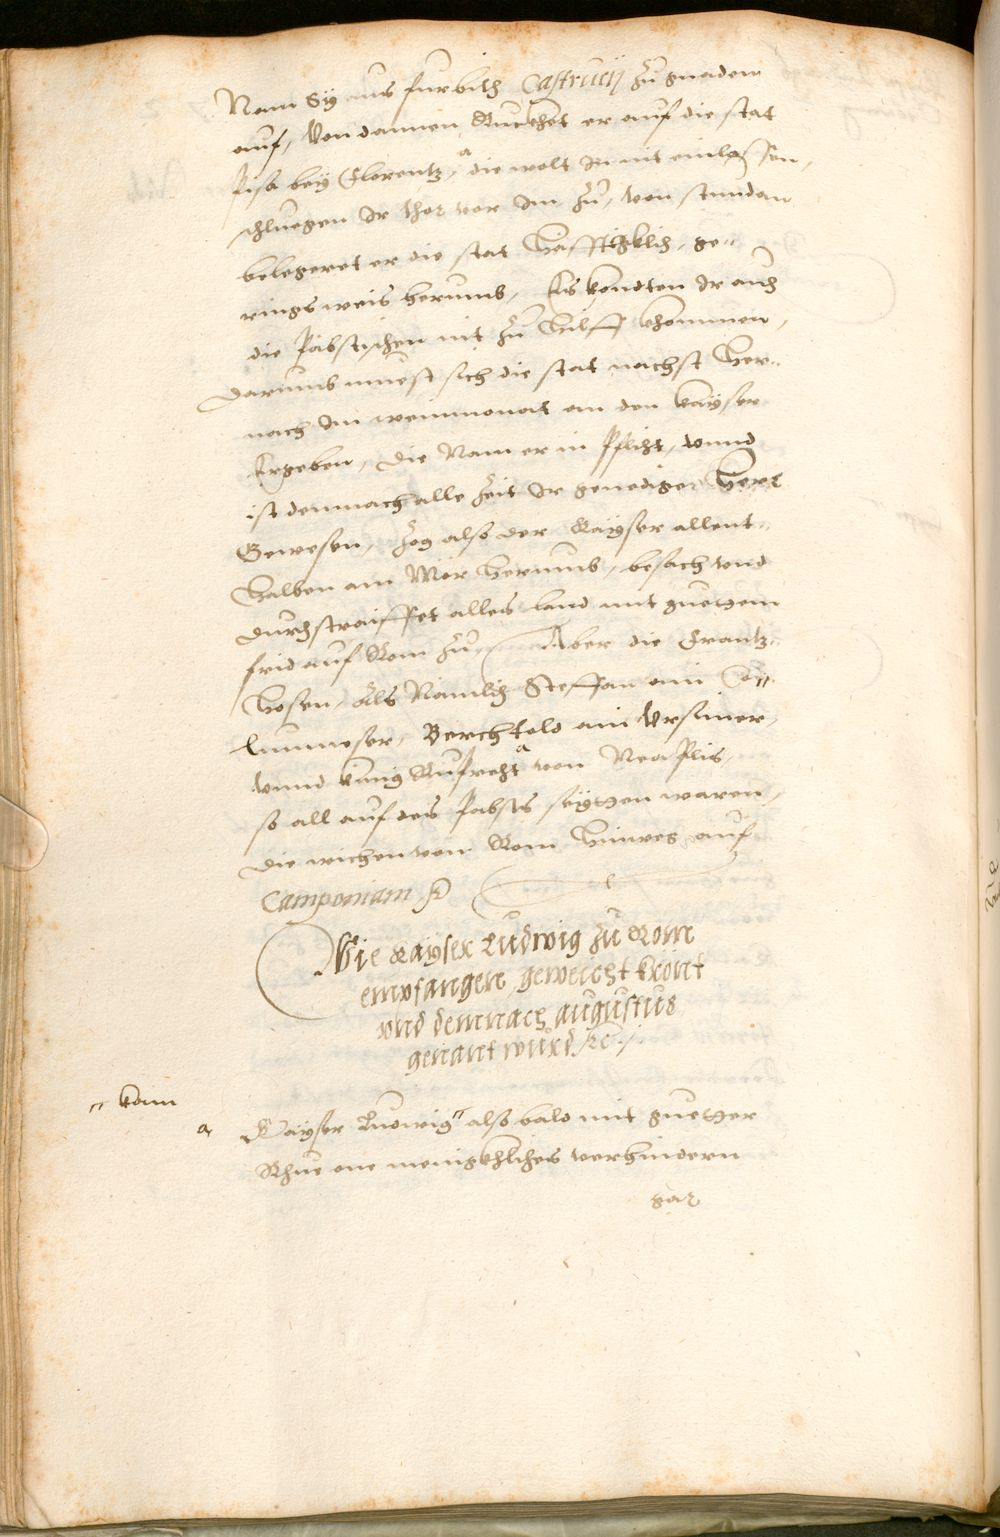 Nam Sy aus furbith Castrucij zu gnaden
auf, Von dannen Ruckhet er auf die stat
Pisa bey Florentz, die wolt In nit einlassen,
schluegen Ir thor vor Im zu, von stundan
belegeret er die stat Hefftigklich, ge„
rings weis herumb, Es kondten Ir auch
die Päbstischen nit zu Hilff khommen,
darumb muest sich die stat nachst Her„
nach Im weinmonat an den kayser
Ergeben, die Nam er in Pflicht, vnnd
ist demnach alle Zeit Ir genediger Herr
Gewesen, Zog also der Kayser allent„
halben am Mör herumb, besach vnd
durchstraiffet alles land mit guetem
frid auf Rom zu, Aber die Frantz„
hosen, Als Nämlich Steffan ain Co„
lumneser, Berchtold ain Vrsiner,
vnnd künig Ruprecht von Neaplis,
so all auf des Pabsts seytten waren,
die wichen von Rom Hinweg auf
Camponiam etc
Wie Kayser Ludwig zu Rom
empfangen geweicht krönt
vnd demnach augustus
genant würd etc.
„ kam
a Kayser Ludwig „ also bald mit guetter
Rhue one menigkhliches verhindern
gar